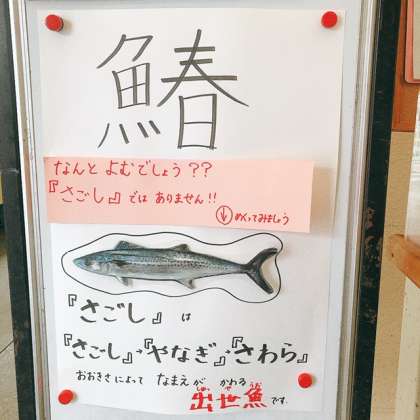 鰆
なんと よむでしょう??
『さごし』では ありません!!
↓ めくってみましょう
『さごし』は
『さごし』→『やなぎ』→『さわら』
おおきさによって なまえが かわる
出世魚です。
しゅっせうお